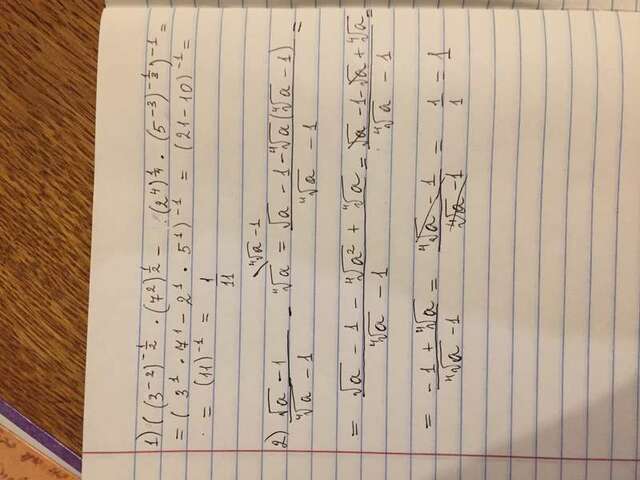 1) ((3^{-2})^{-\frac{1}{2}} · (7^2)^{\frac{1}{2}} - (2^4)^{\frac{1}{4}} · (5^{-3})^{-\frac{1}{3}})^{-1} =
= (3^1 · 7^1 - 2^1 · 5^1)^{-1} = (21 - 10)^{-1} =
= (11)^{-1} = \frac{1}{11}
2) \frac{√a - 1}{∜a - 1} - ∜a^{\ ∜a - 1} = \frac{√a - 1 - ∜a(∜a - 1)}{∜a - 1} =
= \frac{√a - 1 - ∜a^2 + ∜a}{∜a - 1} = \frac{√a - 1 - √a + ∜a}{∜a - 1} =
= \frac{-1 + ∜a}{∜a - 1} = \frac{∜a - 1}{∜a - 1} = \frac{1}{1} = 1